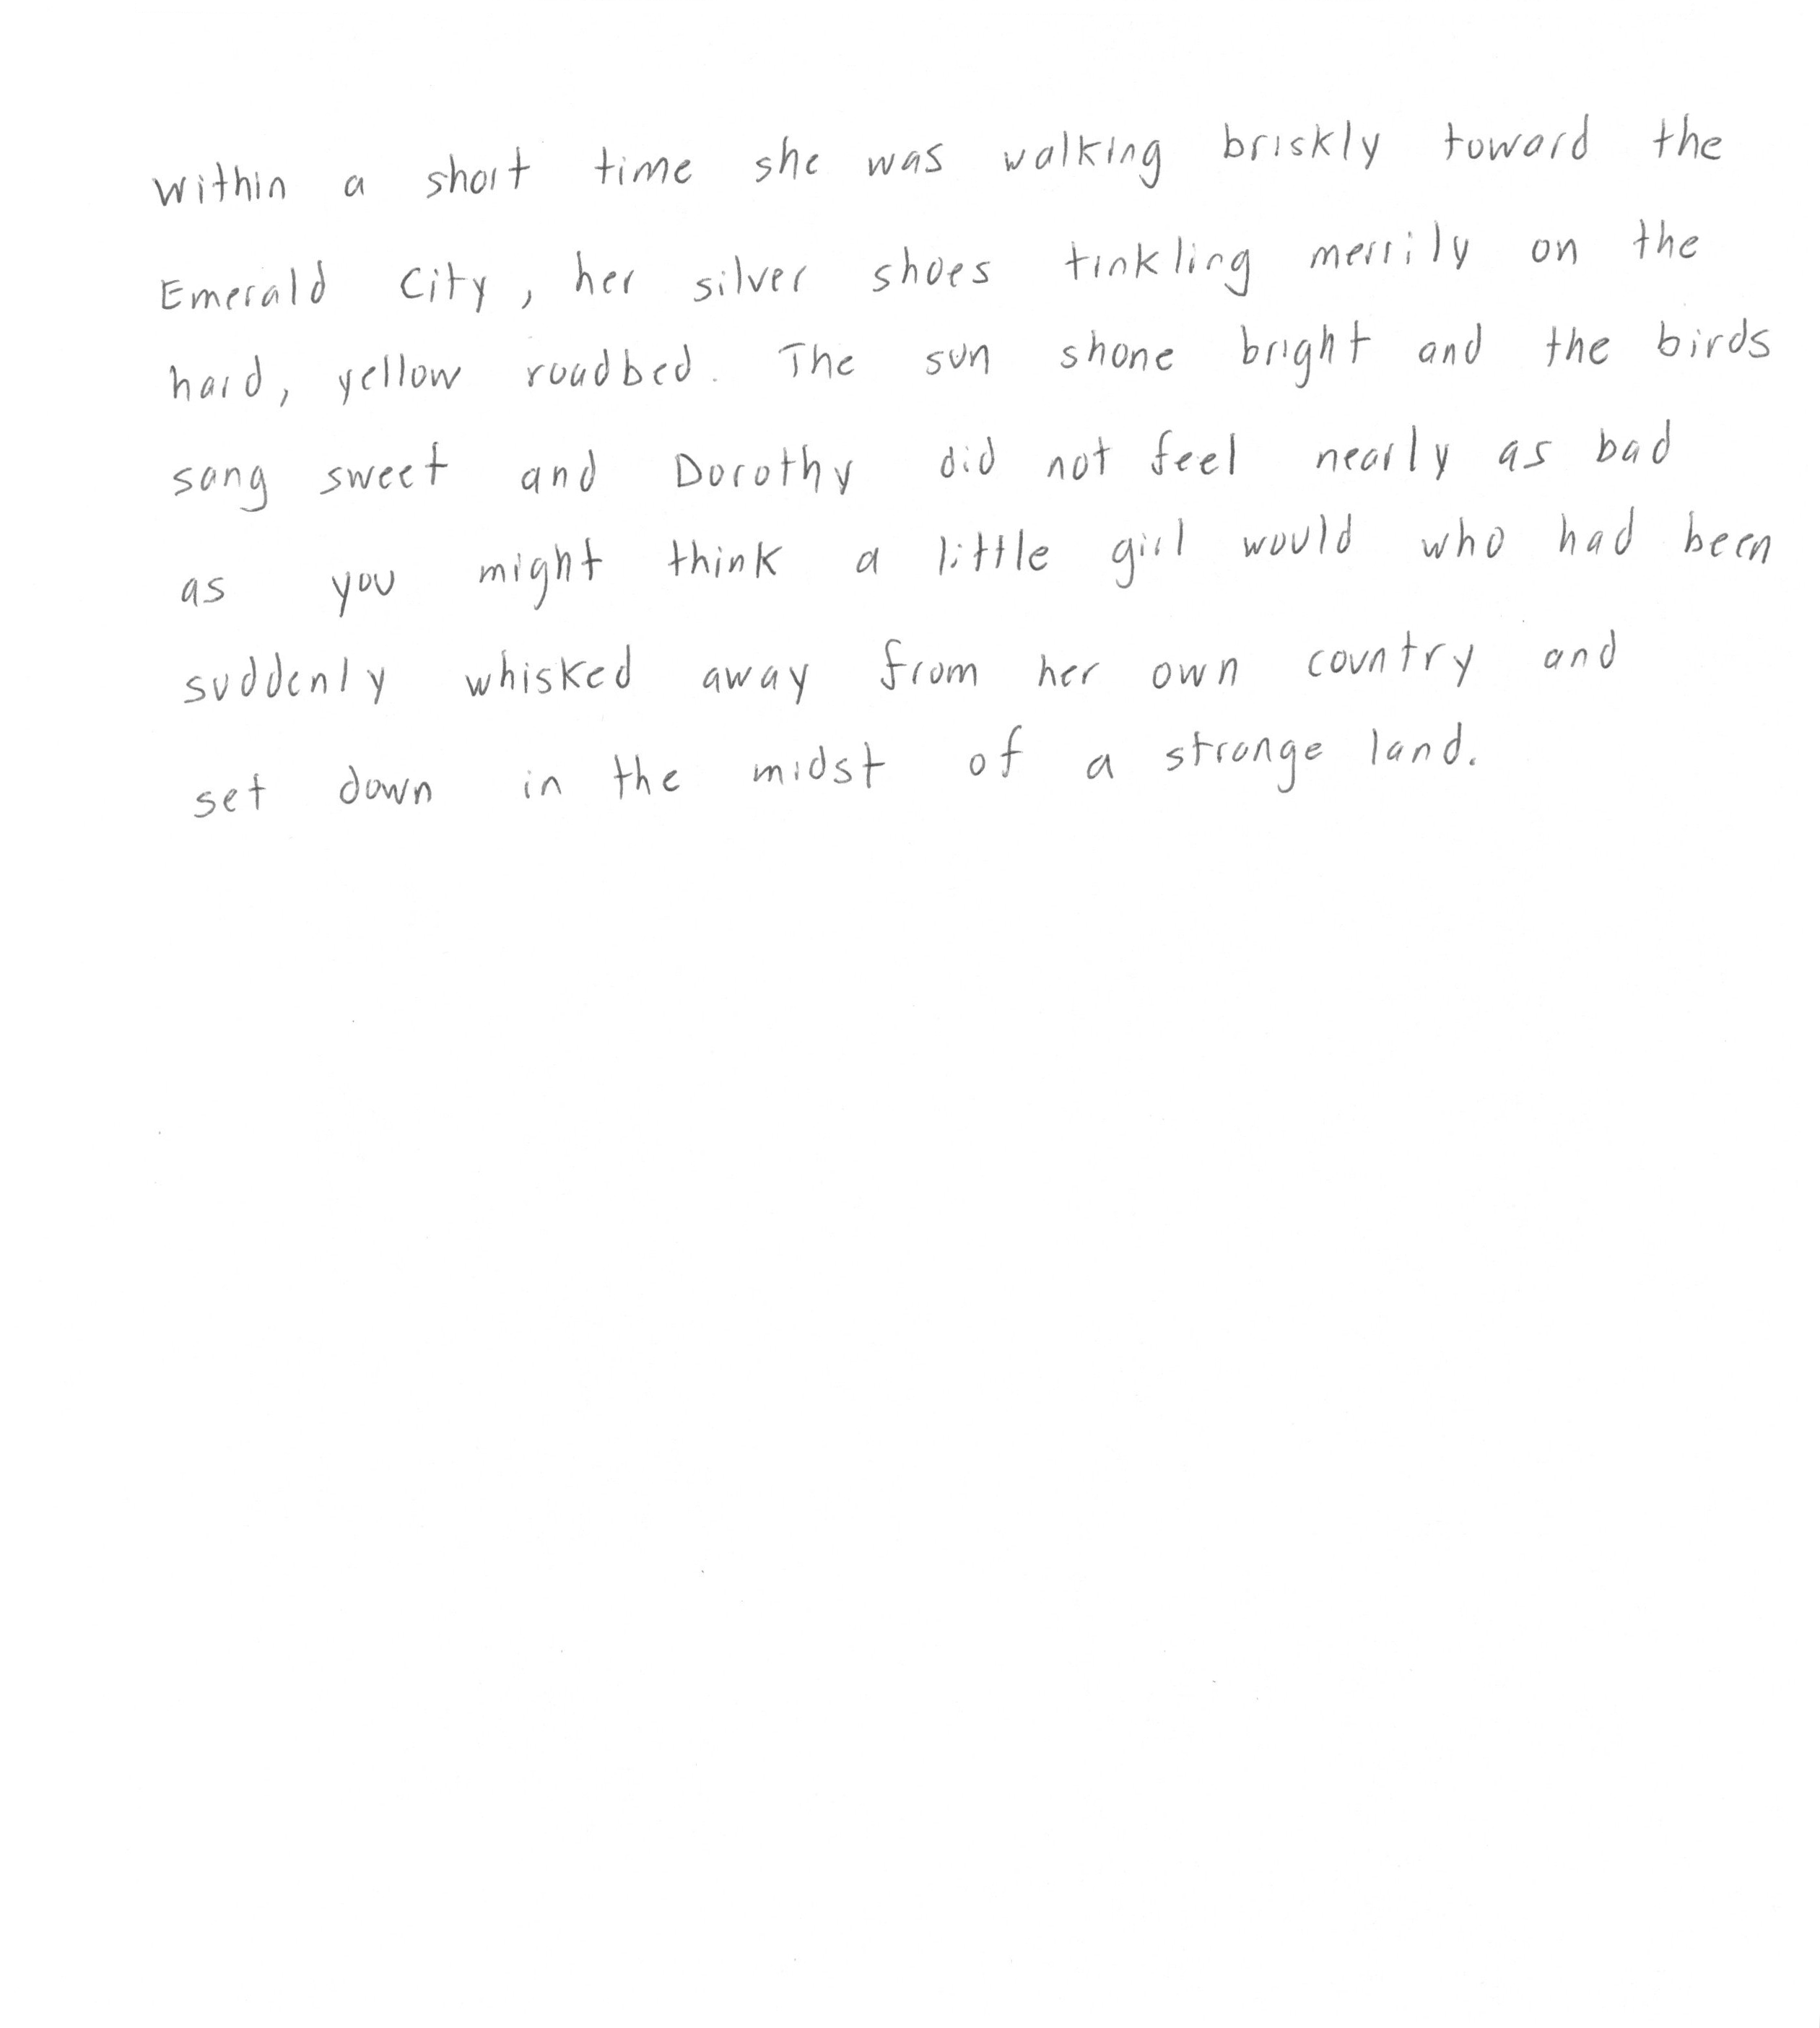 Within a short time she was walking briskly toward the
Emerald City, her silver shoes tinkling merrily on the
hard, yellow roadbed. The sun shone bright and the birds
sang sweet and Dorothy did not feel nearly as bad
as you might think a little girl would who had been
suddenly whisked away from her own country and
set down in the midst of a strange land.